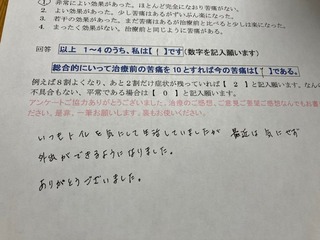 1 非常によい効果があった。ほとんど完全になおり苦痛がない。
2．よい効果があった。少し苦痛はあるがずいぶん楽になった。
3．若干の効果があった。まだ苦痛はあるが治療前と比べると少しは楽になった。
4．まったく効果がなかった。苦痛は治療前と同じ。
回答 以上 1～4のうち、私は【 1 】です（数字を記入願います）
総合的にいって治療前の苦痛を10とすれば今の苦痛は【 1 】である。
例えば8割よくなり、あと2割だけ症状が残っていれば【 2 】と記入願います。なんの
不具合もない、平常である場合は【 0 】と記入願います。
アンケートご協力ありがとうございました。治療のご感想、ご意見ご要望ご感想なんでもお書
ください。是非、一筆お願いします。裏もお使いください。
いつもトイレを気にして生活していましたが 最近は気にせず
外出ができるようになりました。
ありがとうございました。